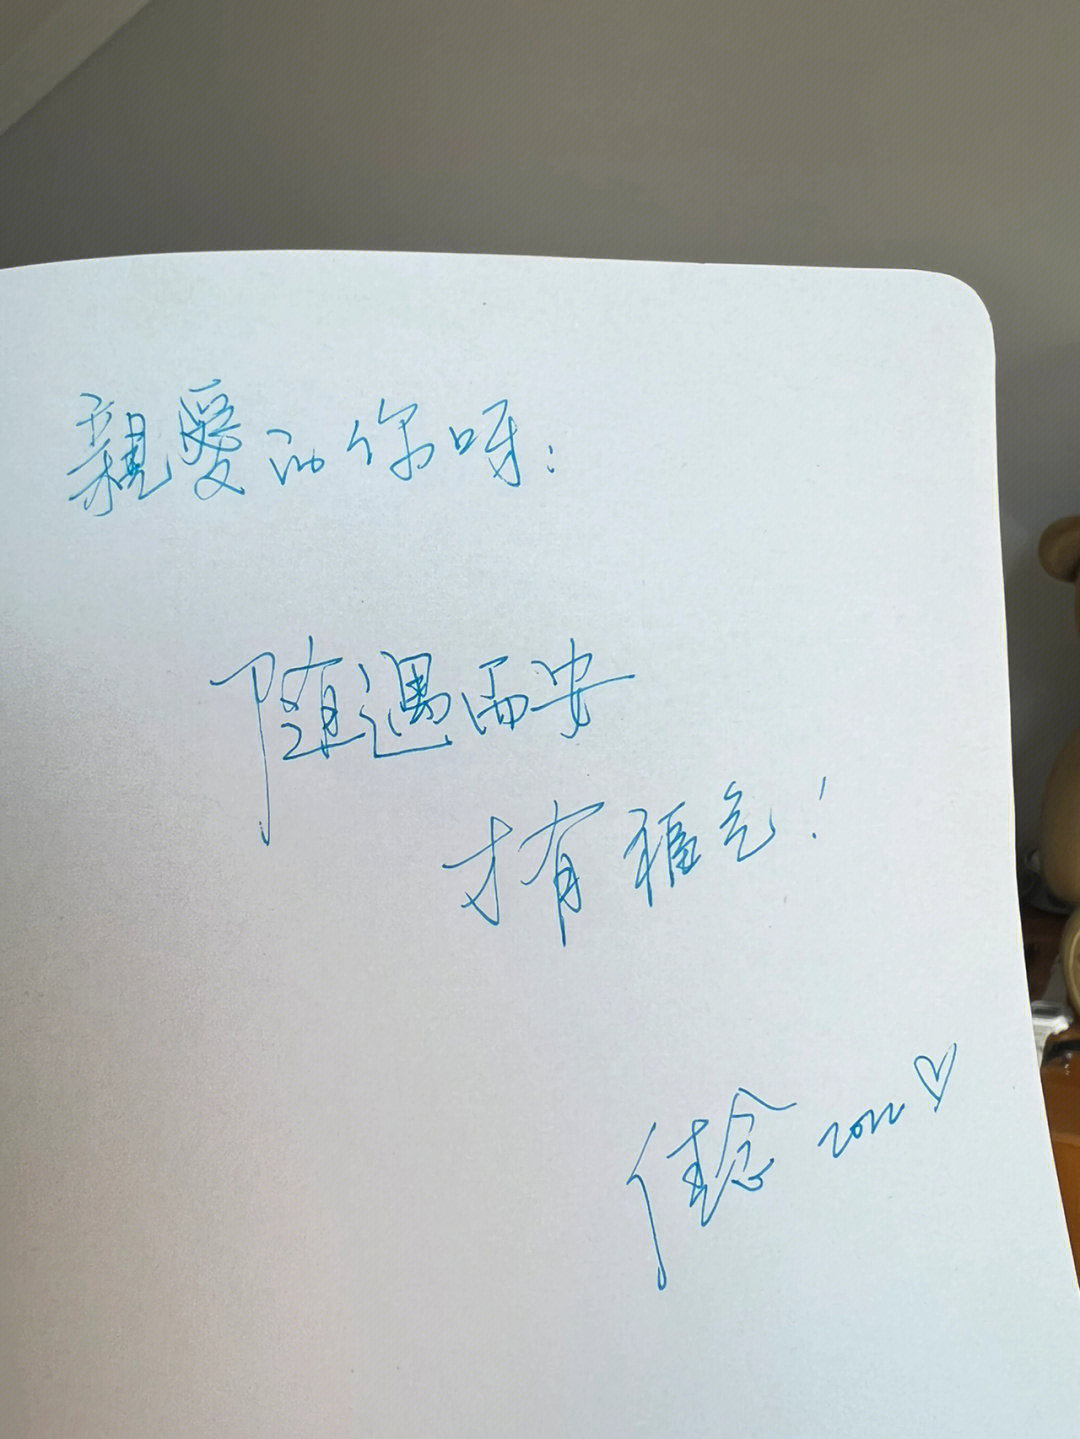 親愛的你呀:
随遇而安
才有福气!
佳念 2022 ♡